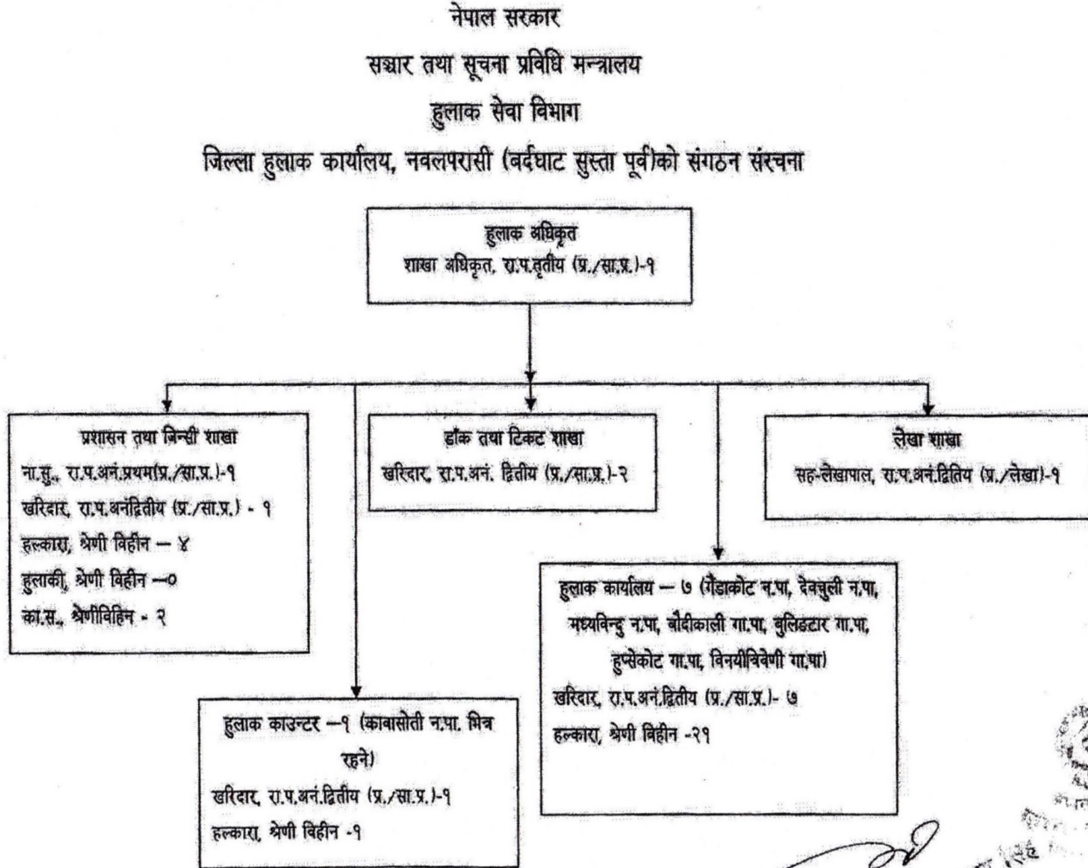 नेपाल सरकार
सञ्चार तथा सूचना प्रविधि मन्त्रालय
हुलाक सेवा विभाग
जिल्ला हुलाक कार्यालय, नवलपरासी (बर्दघाट सुस्ता पूर्व)को संगठन संरचना
हुलाक अधिकृत
शाखा अधिकृत, रा.प.तृतीय (प्र./सा.प्र.)-१
प्रशासन तथा जिन्सी शाखा
ना.सु., रा.प.अनं.प्रथम(प्र./सा.प्र.)-१
खरिदार, रा.प.अनंद्वितीय (प्र./सा.प्र.) - १
हल्कारा, श्रेणी विहीन – ४
हुलाकी, श्रेणी विहीन –०
का.स., श्रेणीविहिन - २
डाँक तथा टिकट शाखा
खरिदार, रा.प.अनं. द्वितीय (प्र./सा.प्र.)-२
लेखा शाखा
सह-लेखापाल, रा.प.अनं.द्वितिय (प्र./लेखा)-१
हुलाक कार्यालय – ७ (गैंडाकोट न.पा, देवचुली न.पा,
मध्यविन्दु न.पा, बौदीकाली गा.पा, बुलिङटार गा.पा,
हुप्सेकोट गा.पा, विनयीत्रिवेणी गा.पा)
खरिदार, रा.प.अनं.द्वितीय (प्र./सा.प्र.)- ७
हल्कारा, श्रेणी विहीन -२१
हुलाक काउन्टर –१ (कावासोती न.पा. भित्र
रहने)
खरिदार, रा.प.अनं.द्वितीय (प्र./सा.प्र.)-१
हल्कारा, श्रेणी विहीन -१